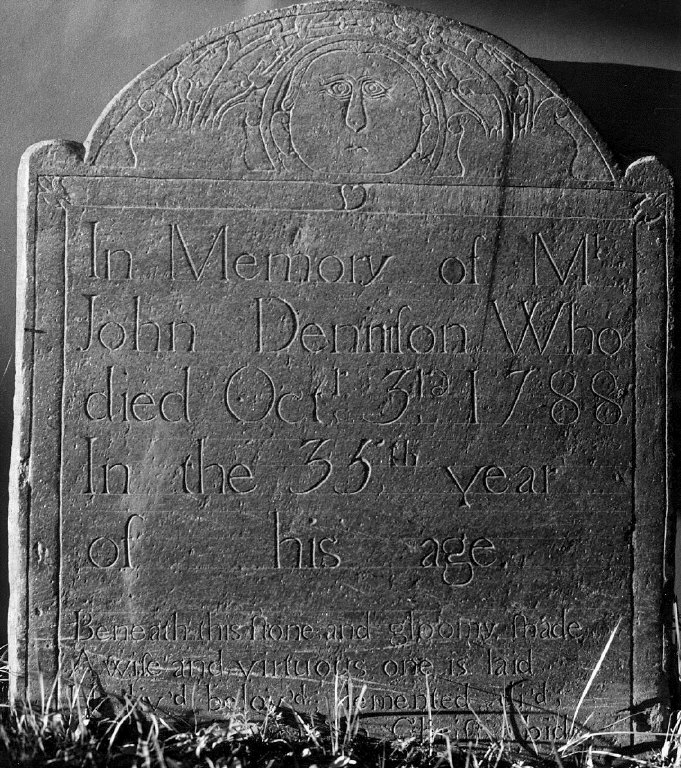 In Memory of Mr
John Denniſon Who
died Octr 3rd 1788
In the 35th year
of his age
Beneath this ſtone and gloomy ſhade
A wiſe and virtuous one is laid
belov'd